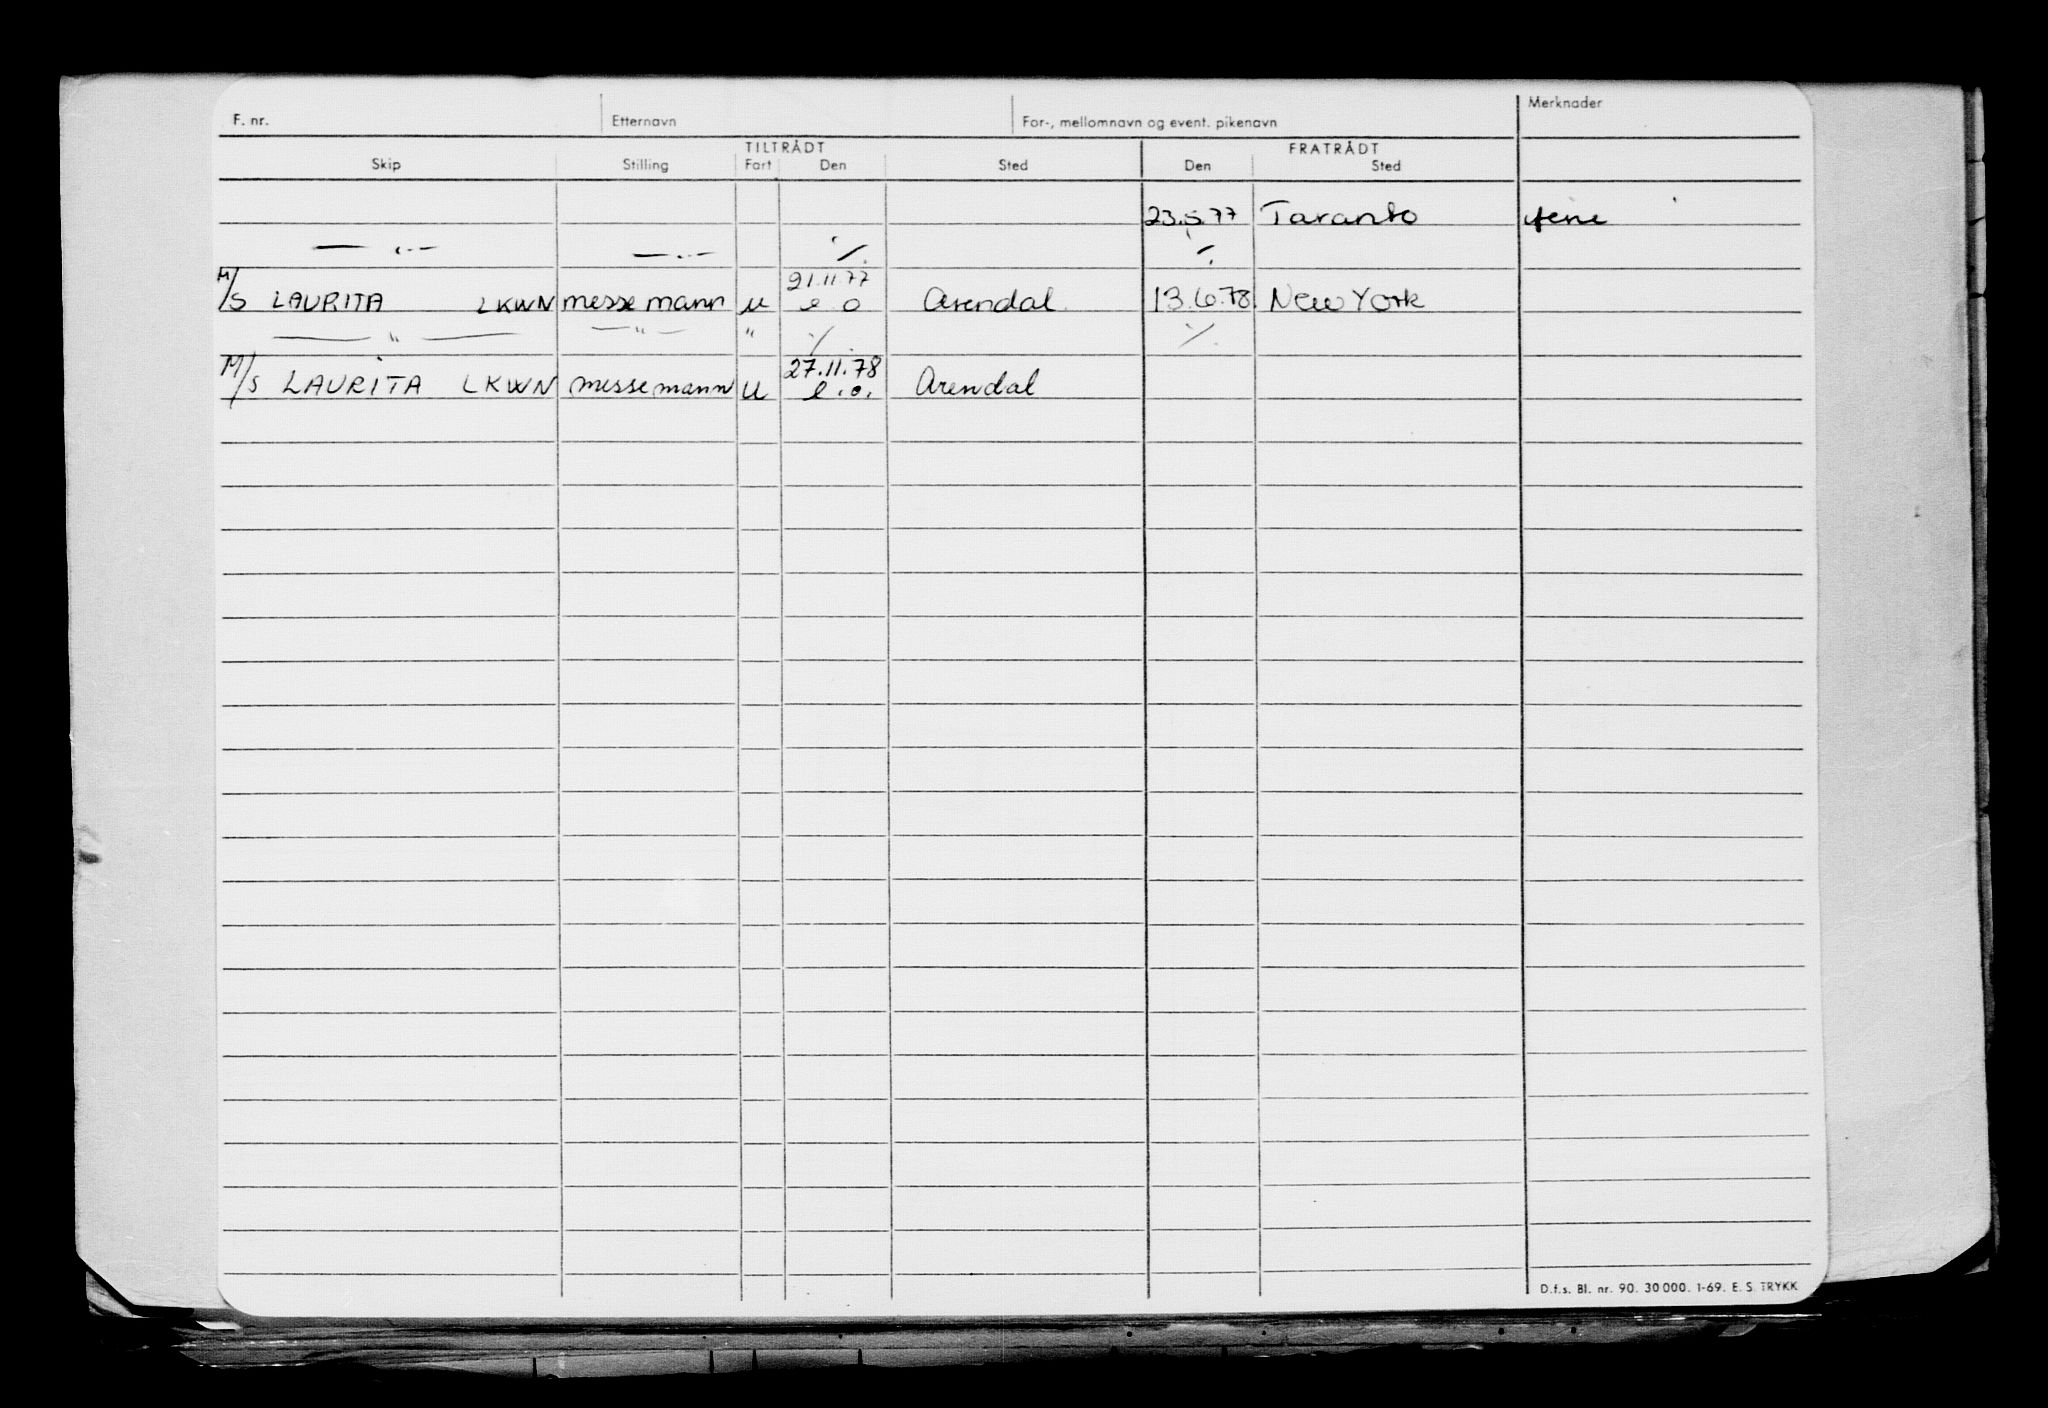 F. nr. Etternavn For-, mellomnavn og event. pikenavn Merknader
TILTRÅDT FRATRÅDT
Skip Stilling Fart Den Sted Den Sted
23.5.77 Taranto ferie
— " — — " — ·/. ·/.
M/S LAURITA LKWN messemann U 21.11.77 e o Arendal 13.6.78 New York
— " — — " — " ·/. ·/.
M/S LAURITA LKWN messemann U 27.11.78 e.o. Arendal
D.f.s. Bl. nr. 90. 30 000. 1-69. E. S. TRYKK